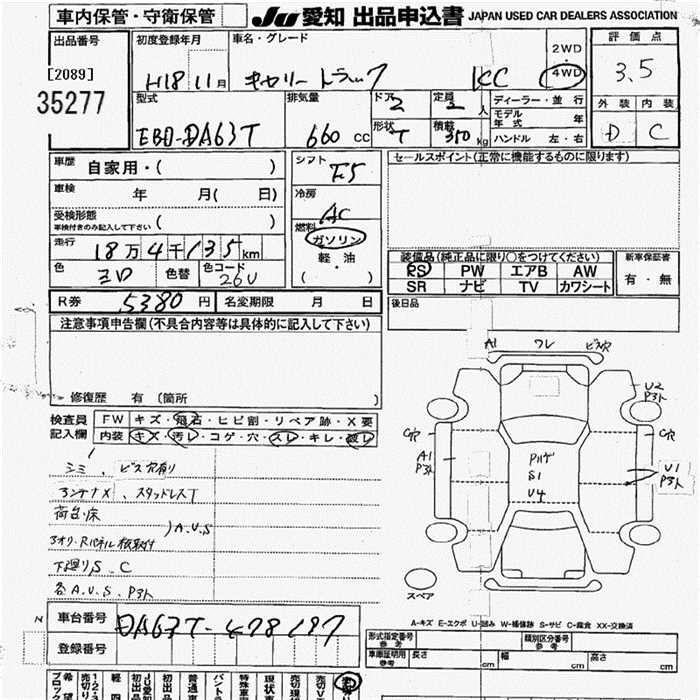 車内保管・守衛保管
JU 愛知 出品申込書 JAPAN USED CAR DEALERS ASSOCIATION
出品番号
[2089]
35277
初度登録年月
H18 11月
車名・グレード
キャリートラック KC
2WD
4WD
評価点
3.5
外装 内装
D C
型式
EBD-DA63T
排気量
660 CC
ドア
2
定員
2 人
形状
T
積載
350 kg
ディーラー・並行
モデル年式 年
ハンドル 左・右
車歴 自家用・( )
車検 年 月( 日)
受検形態
車検付きのみ記入して下さい ( )
走行 18万4千135km
色
シロ
色替
色コード
26U
シフト
F5
冷房
AC
燃料
ガソリン
軽・油
( )
セールスポイント(正常に機能するものに限ります)
装備品(純正品に限り○をつけてください)
PS PW エアB AW
SR ナビ TV カワシート
新車保証書
有・無
後日品
R券 5380円 名変期限 月 日
注意事項申告欄(不具合内容等は具体的に記入して下さい)
修復歴 有 〔箇所
検査員記入欄
FW キズ・飛石・ヒビ割・リペア跡・X要
内装 キズ・汚レ・コゲ・穴・スレ・キレ・破レ
シミ、ビス穴有り
3ケンナメ、スタッドレスT
荷台・床
)A.U.S
3オリ・Rパネル板取付
下廻りS.C
各A.U.S.P3ト
A1 ワレ ビス穴
U2
P3ト
C穴
A1
P3ト
C穴
U1
P3ト
S1
U4
スペア
A-キズ E-エクボ U-凹み W-補修跡 S-サビ C-腐食 XX-交換済
車台番号
DA63T-478197
登録番号
形式指定番号
参考
類別区分番号
参考
車庫証明用
参考
長さ cm 幅 cm 高さ cm